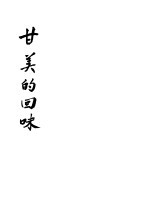 甘美的回味